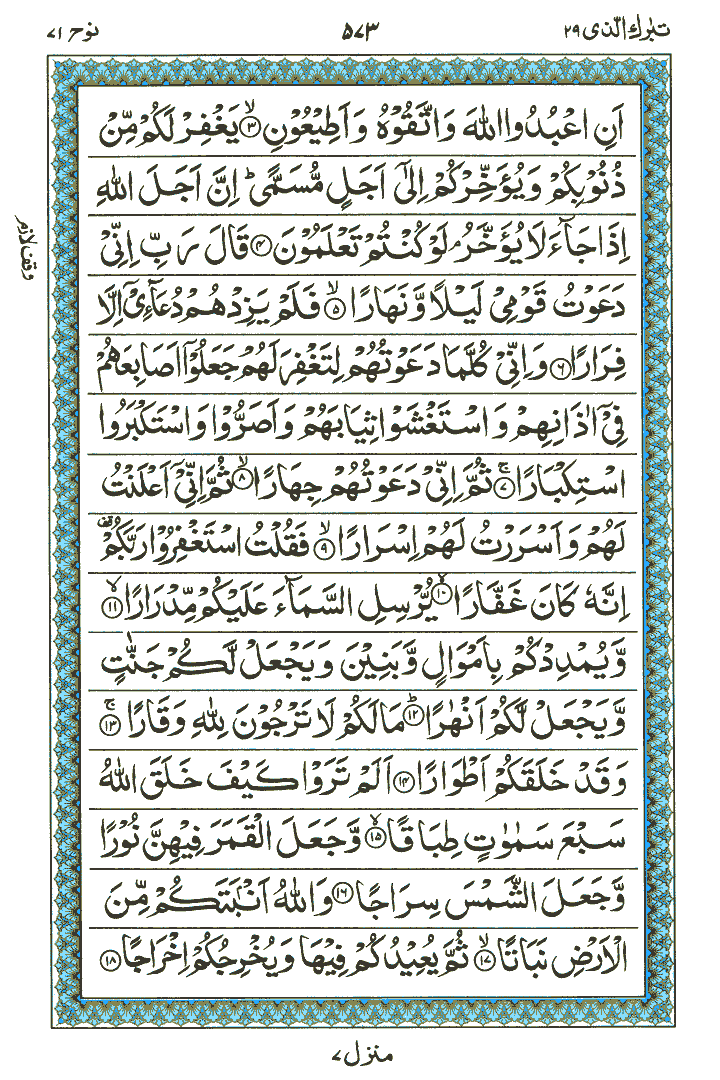 تبٰرك الّذی ۲۹ ۵۷۳ نوح ۷۱
اَنِ اعْبُدُوا اللّٰهَ وَاتَّقُوْهُ وَاَطِيْعُوْنِ ۙ﴿۳﴾ يَغْفِرْ لَكُمْ مِّنْ
ذُنُوْبِكُمْ وَيُؤَخِّرْكُمْ اِلٰۤى اَجَلٍ مُّسَمًّى ؕ اِنَّ اَجَلَ اللّٰهِ
اِذَا جَآءَ لَا يُؤَخَّرُ ۘ لَوْ كُنْتُمْ تَعْلَمُوْنَ ﴿۴﴾ قَالَ رَبِّ اِنِّىْ
وقف لازم
دَعَوْتُ قَوْمِىْ لَيْلًا وَّنَهَارًا ۙ﴿۵﴾ فَلَمْ يَزِدْهُمْ دُعَآءِىْۤ اِلَّا
فِرَارًا ﴿۶﴾ وَاِنِّىْ كُلَّمَا دَعَوْتُهُمْ لِتَغْفِرَ لَهُمْ جَعَلُوْۤا اَصَابِعَهُمْ
فِىْۤ اٰذَانِهِمْ وَاسْتَغْشَوْا ثِيَابَهُمْ وَاَصَرُّوْا وَاسْتَكْبَرُوا
اسْتِكْبَارًا ۚ﴿۷﴾ ثُمَّ اِنِّىْ دَعَوْتُهُمْ جِهَارًا ۙ﴿۸﴾ ثُمَّ اِنِّىْۤ اَعْلَنْتُ
لَهُمْ وَاَسْرَرْتُ لَهُمْ اِسْرَارًا ۙ﴿۹﴾ فَقُلْتُ اسْتَغْفِرُوْا رَبَّكُمْ ؕ
اِنَّهٗ كَانَ غَفَّارًا ۙ﴿۱۰﴾ يُّرْسِلِ السَّمَآءَ عَلَيْكُمْ مِّدْرَارًا ۙ﴿۱۱﴾
وَّيُمْدِدْكُمْ بِاَمْوَالٍ وَّبَنِيْنَ وَيَجْعَلْ لَّكُمْ جَنّٰتٍ
وَّيَجْعَلْ لَّكُمْ اَنْهٰرًا ؕ﴿۱۲﴾ مَا لَكُمْ لَا تَرْجُوْنَ لِلّٰهِ وَقَارًا ۚ﴿۱۳﴾
وَقَدْ خَلَقَكُمْ اَطْوَارًا ﴿۱۴﴾ اَلَمْ تَرَوْا كَيْفَ خَلَقَ اللّٰهُ
سَبْعَ سَمٰوٰتٍ طِبَاقًا ۙ﴿۱۵﴾ وَّجَعَلَ الْقَمَرَ فِيْهِنَّ نُوْرًا
وَّجَعَلَ الشَّمْسَ سِرَاجًا ﴿۱۶﴾ وَاللّٰهُ اَنْۢبَتَكُمْ مِّنَ
الْاَرْضِ نَبَاتًا ۙ﴿۱۷﴾ ثُمَّ يُعِيْدُكُمْ فِيْهَا وَيُخْرِجُكُمْ اِخْرَاجًا ﴿۱۸﴾
منزل ۷